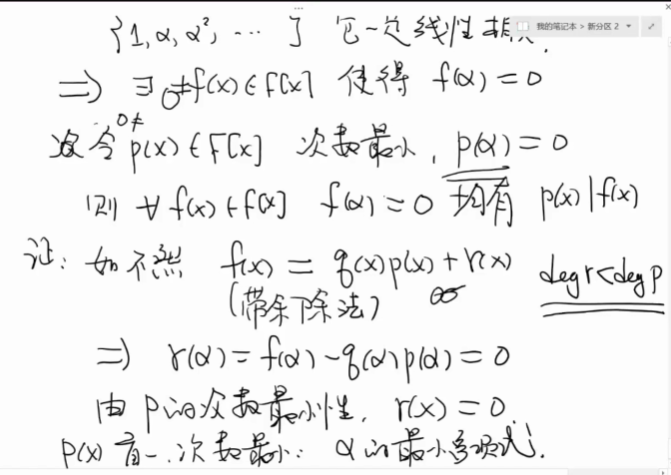 {1, α, α², ⋯ } 它一定线性相
我的笔记本 > 新分区 2
⟹ ∃ 0≠f(x)∈F[x] 使得 f(α)=0
设令 0≠p(x)∈F[x] 次数最小, p(α)=0
则 ∀ f(x)∈F[x] f(α)=0 均有 p(x)|f(x)
证: 如不然 f(x) = q(x)p(x)+r(x) deg r<deg p
(带余除法)
⟹ r(α)=f(α)-q(α)p(α)=0
由 p的次数最小性, r(x)=0
p(x) 首一, 次数最小: α的最小多项式.